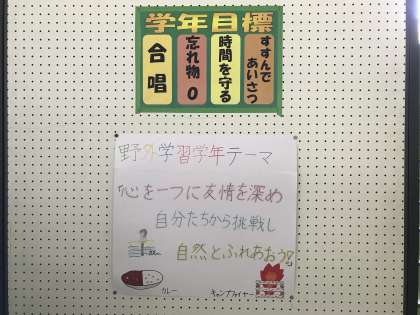 学年目標
すすんで
あいさつ
時間を守る
忘れ物0
合唱
野外学習学年テーマ
「心を一つに友情を深め
自分たちから挑戦し
自然とふれあおう」
カレー
キャンプファイヤー